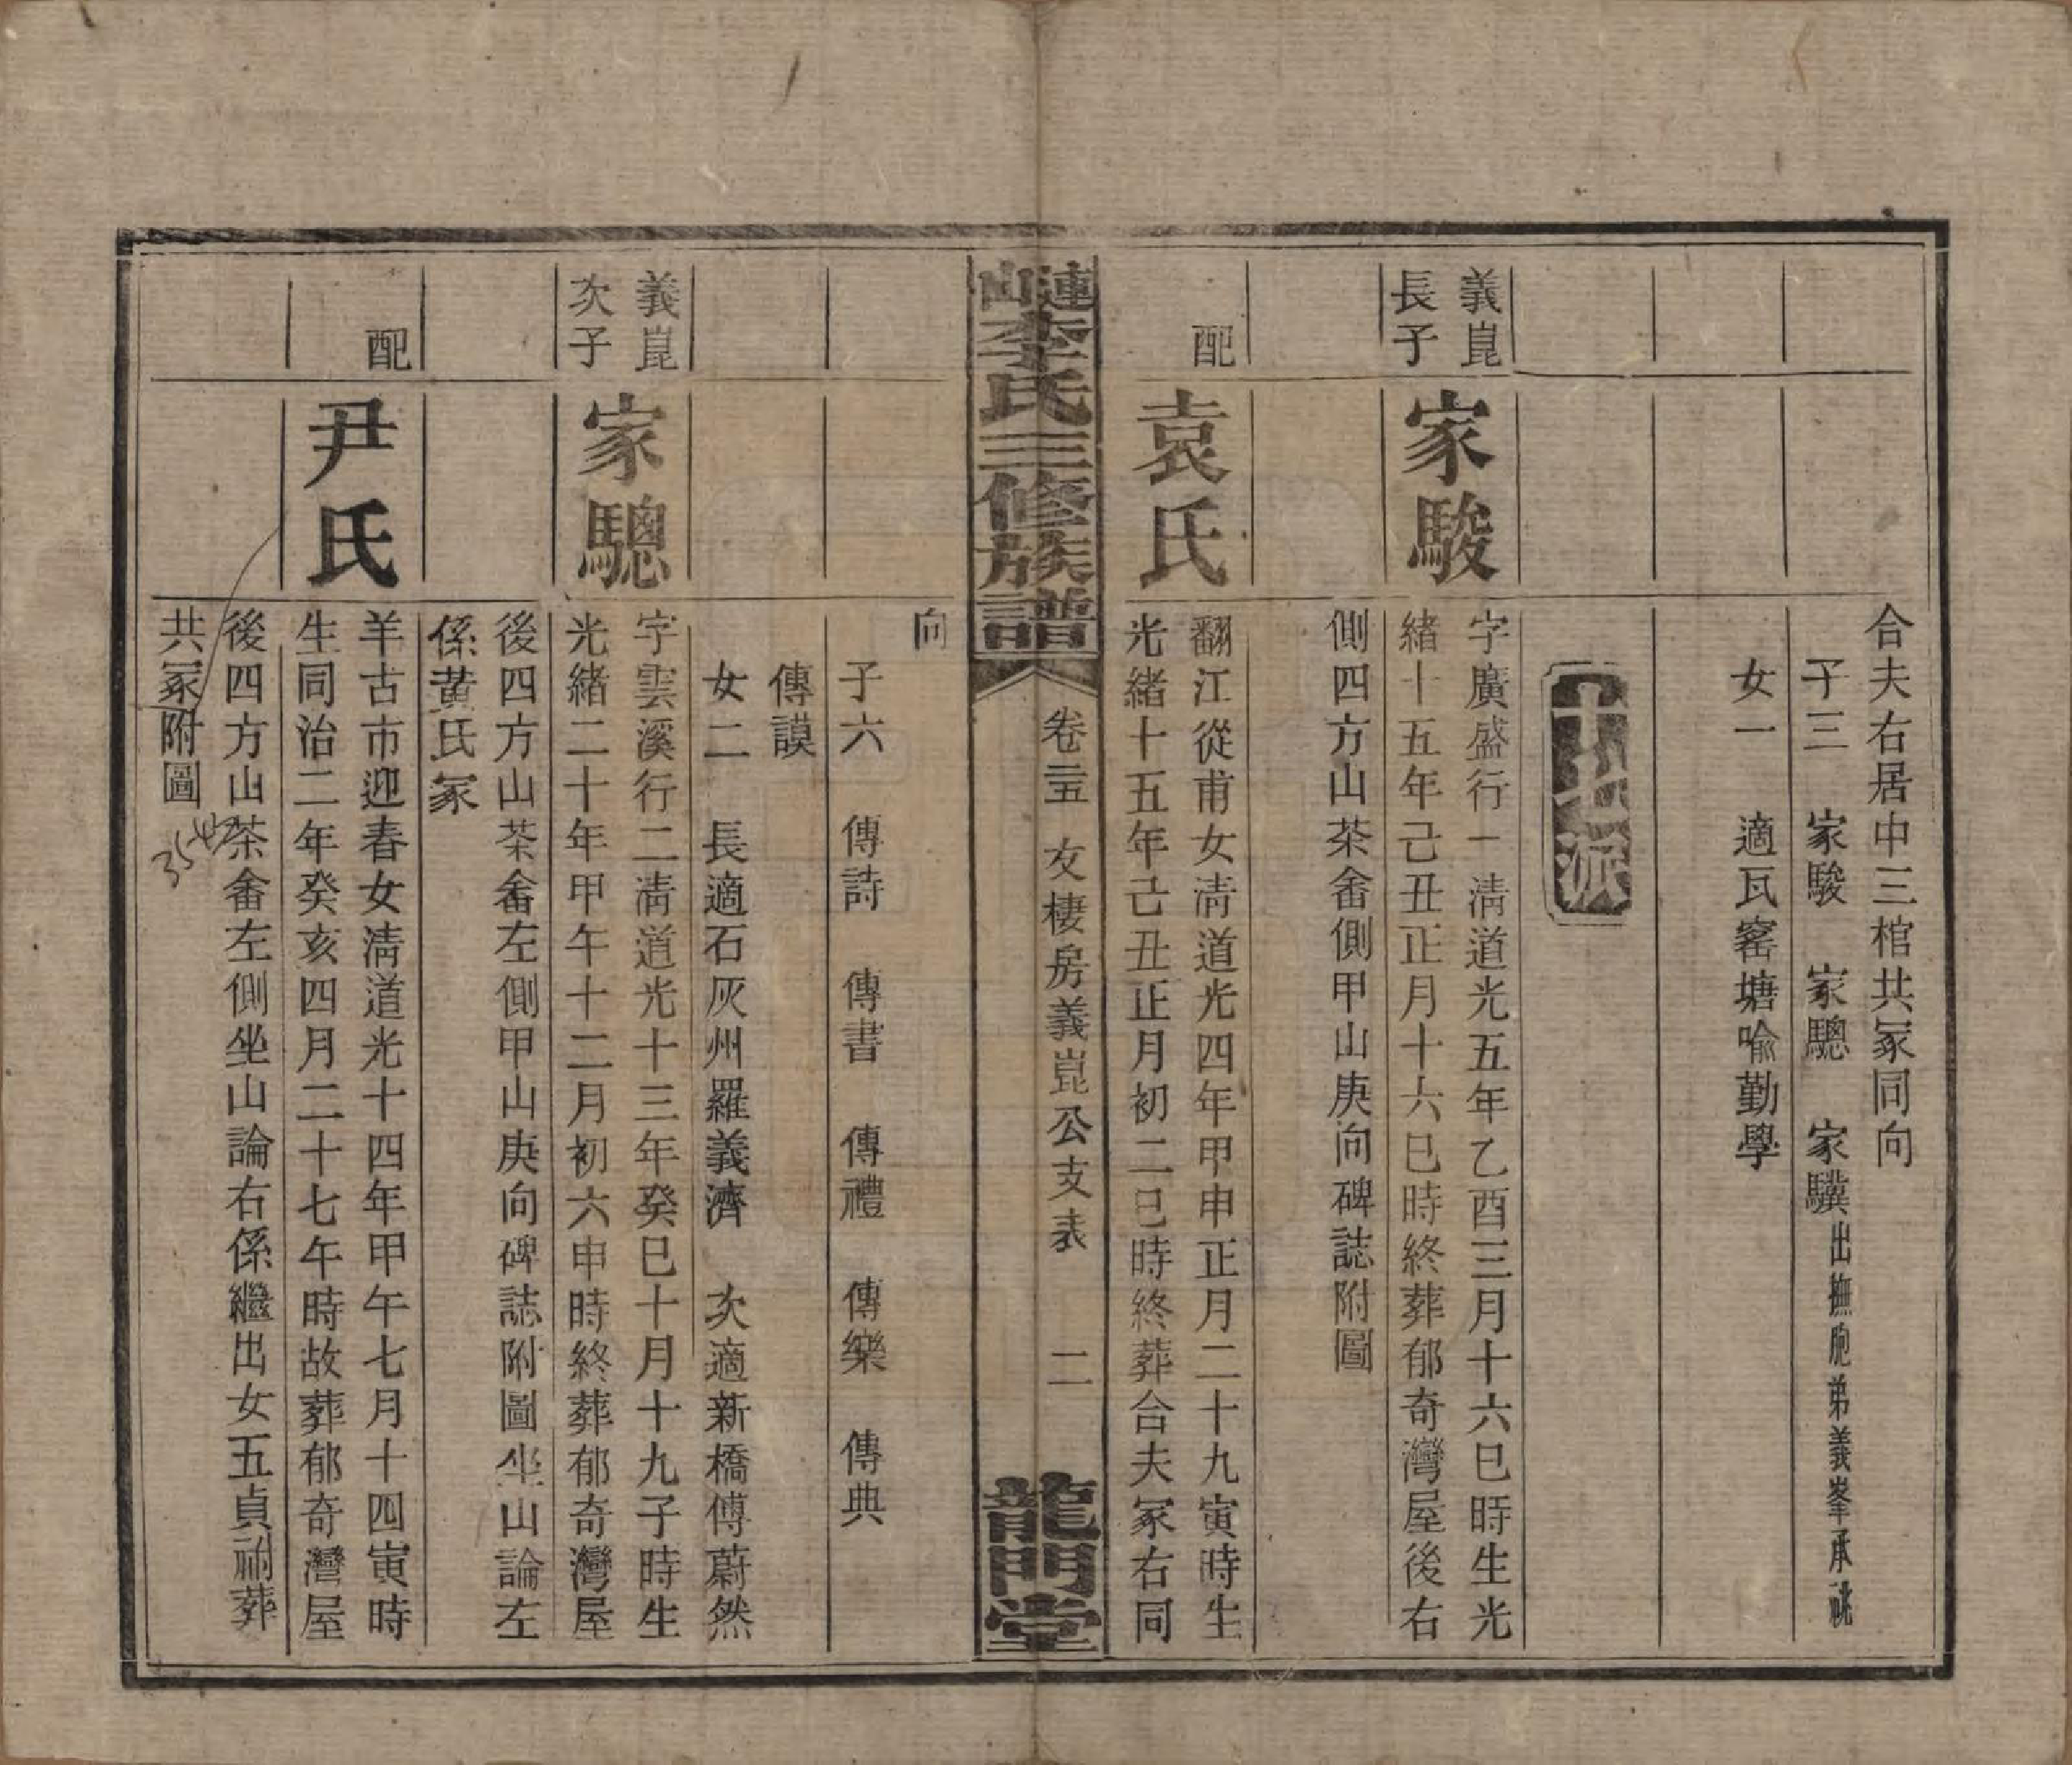 合夫右居中三棺共冢同向
子三　家駿　家驄　家驥出撫胞弟義峯承祧
女一　適瓦窰塘喻勤學
十七派
義崑
長子
家駿
字廣盛行一淸道光五年乙酉三月十六巳時生光
緒十五年己丑正月十六巳時終葬郁奇灣屋後右
側四方山茶畬側甲山庚向碑誌附圖
配
袁氏
翻江從甫女淸道光四年甲申正月二十九寅時生
光緒十五年己丑正月初二巳時終葬合夫冢右同
漣山李氏三修族譜
卷二五　友棲房義崑公支表　二
龍門堂
向
子六　傳詩　傳書　傳禮　傳樂　傳典
傳謨
女二　長適石灰州羅義濟　次適新橋傅蔚然
義崑
次子
家驄
字雲溪行二淸道光十三年癸巳十月十九子時生
光緒二十年甲午十二月初六申時終葬郁奇灣屋
後四方山茶畬左側甲山庚向碑誌附圖坐山論左
係黃氏冢
配
尹氏
羊古市迎春女淸道光十四年甲午七月十四寅時
生同治二年癸亥四月二十七午時故葬郁奇灣屋
後四方山茶畬左側坐山論右係繼出女五貞祔葬
共冢附圖